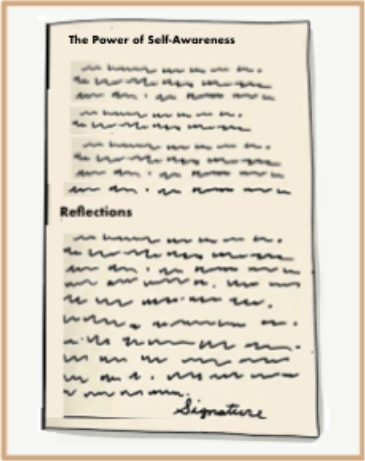 The Power of Self-Awareness
Reflections
Signature